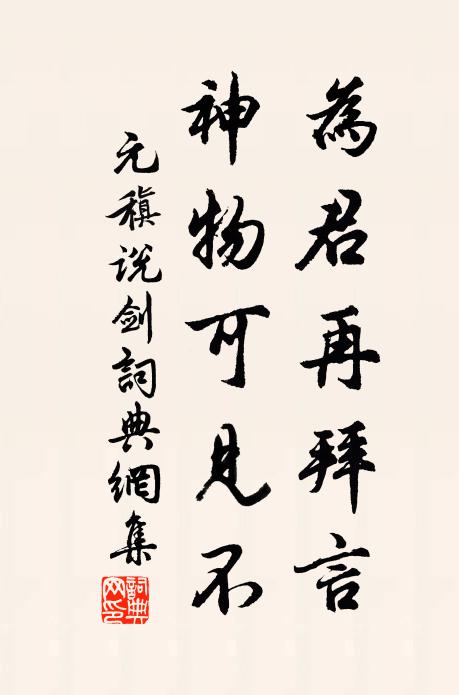 為君再拜言
神物可見不
元稹说劍詞典網集
詞典網印